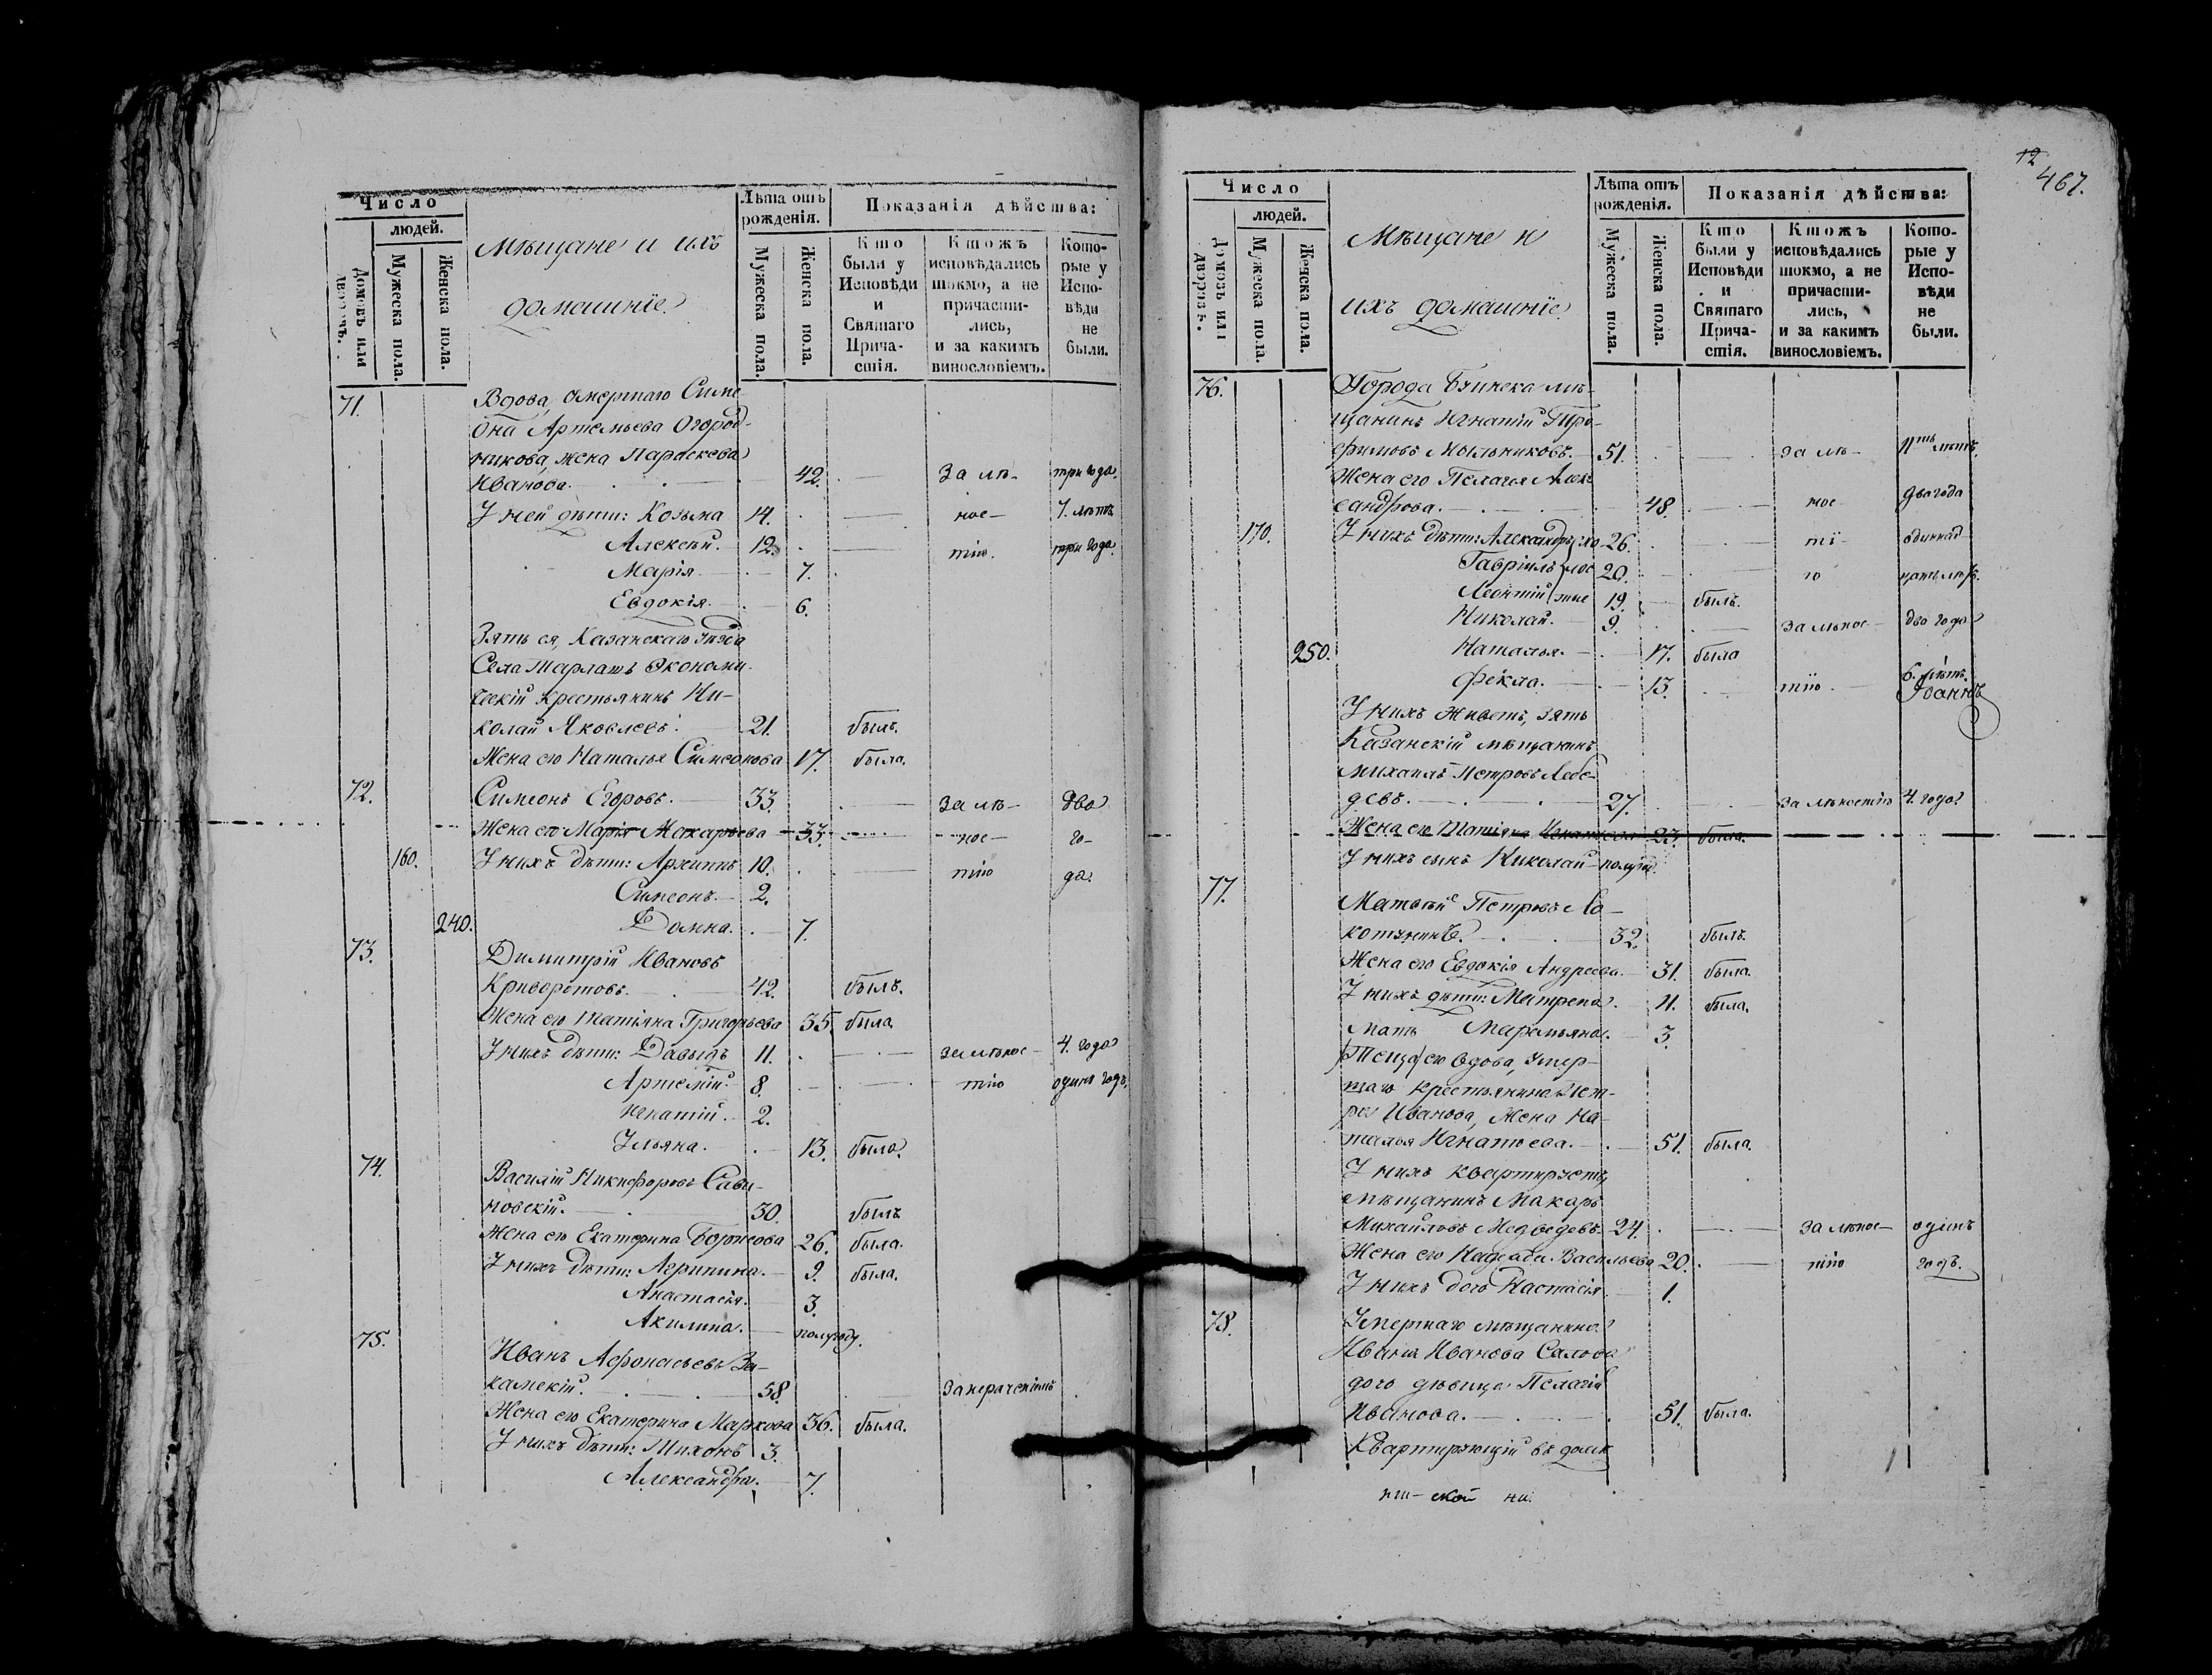 Число
людей.
Домовъ или дворовъ.
Мужеска пола.
Женска пола.
Мѣщане и ихъ
домашнїе
Лѣта отъ рожденія.
Мужеска пола.
Женска пола.
Показанія дѣйства:
Кто были у Исповѣди и Святаго Причастія.
Ктожъ исповѣдались токмо, а не причастились, и за какимъ винословіемъ.
Которые у Исповѣди не были.
71.
Вдова, умершаго Симе-
она Артемьева Огород-
никова, жена Параскева
Иванова. 42. За лѣ- три года.
У ней дѣти: Козьма 14. ное- 7. лѣтъ
Алексѣй. 12. тію. три года.
Марія 7.
Евдокія 6.
Зять ея, Казанскаго уѣзда
Села Экономи-
ческій крестьянинъ Ни-
колай Яковлевъ. 21. былъ.
Жена его Наталья Симеонова 17. была.
72. Симеонъ Егоровъ. 33. за лѣ- два
Жена его Марія Макарьева 33. ное- го-
160. У нихъ дѣти: Архипъ 10. тію да.
Симеонъ 2.
240. Домна. 7.
73. Димитрій Ивановъ
Криворотовъ. 42. былъ.
Жена его Татіяна Григорьева 35. была.
У нихъ дѣти: Давыдъ 11. за лѣнос- 4. года
Артемій 8. тію одинъ годъ.
Игнатій. 2.
Ульяна. 13. была.
74. Василій Никифоровъ Сави-
новскій. 30. былъ
Жена его Екатерина Борисова 26. была.
У нихъ дѣти: Агрипина. 9. была.
Анастасія. 3.
Акилина. полугоду.
75. Иванъ Афонасьевъ За-
камскій. 58.
Жена его Екатерина Маркова 36. была.
У нихъ дѣти: Тихонъ 3.
Александра. 7.
12
467.
Число
людей.
Домовъ или дворовъ.
Мужеска пола.
Женска пола.
Мѣщане и
ихъ домашнїе
Лѣта отъ рожденія.
Мужеска пола.
Женска пола.
Показанія дѣйства:
Кто были у Исповѣди и Святаго Причастія.
Ктожъ исповѣдались токмо, а не причастились, и за какимъ винословіемъ.
Которые у Исповѣди не были.
76. Города мѣ-
щанинъ Игнатій Тро-
фимовъ Мыльниковъ. 51. за лѣ- 11ть лѣтъ.
Жена его Пелагея Алек-
сандрова. 48. нос- два года
170. У нихъ дѣти: Александръ хо- 26. ті- одиннад
Гавріилъ лос 20. ю цать лѣтъ.
Леонтій тые 19. былъ.
Николай. 9. за лѣнос- два года
250. Наталья. 17. была
Фекла. 13. тію 6. лѣтъ.
У нихъ живетъ, зять
Казанскій мѣщанинъ
Михаилъ Петровъ Лебе-
девъ. 27. за лѣностію 4. года
Жена его Татіяна Игнатьева 23. была.
У нихъ сынъ Николай
77. Матвѣй Петровъ Ло-
котунинъ. 32. былъ.
Жена его Евдокія Андреева 31. была.
У нихъ дѣти: Матрена. 11. была.
Мать Маремьяна. 3.
(Теща) его вдова, умер-
шаго крестьянина Пет-
ра Иванова, жена На-
талья Игнатьева. 51. была.
У нихъ квартируетъ,
мѣщанинъ Макаръ
Михайловъ Медведевъ. 24. за лѣнос- одинъ
Жена его Надежда Васильева 20. тію годъ.
У нихъ дочь Настасія 1.
78. Умершаго мѣщанина
Ивана Иванова Салова
дочь дѣвица Пелагія
Иванова. 51. была.
Квартирующій въ домѣ